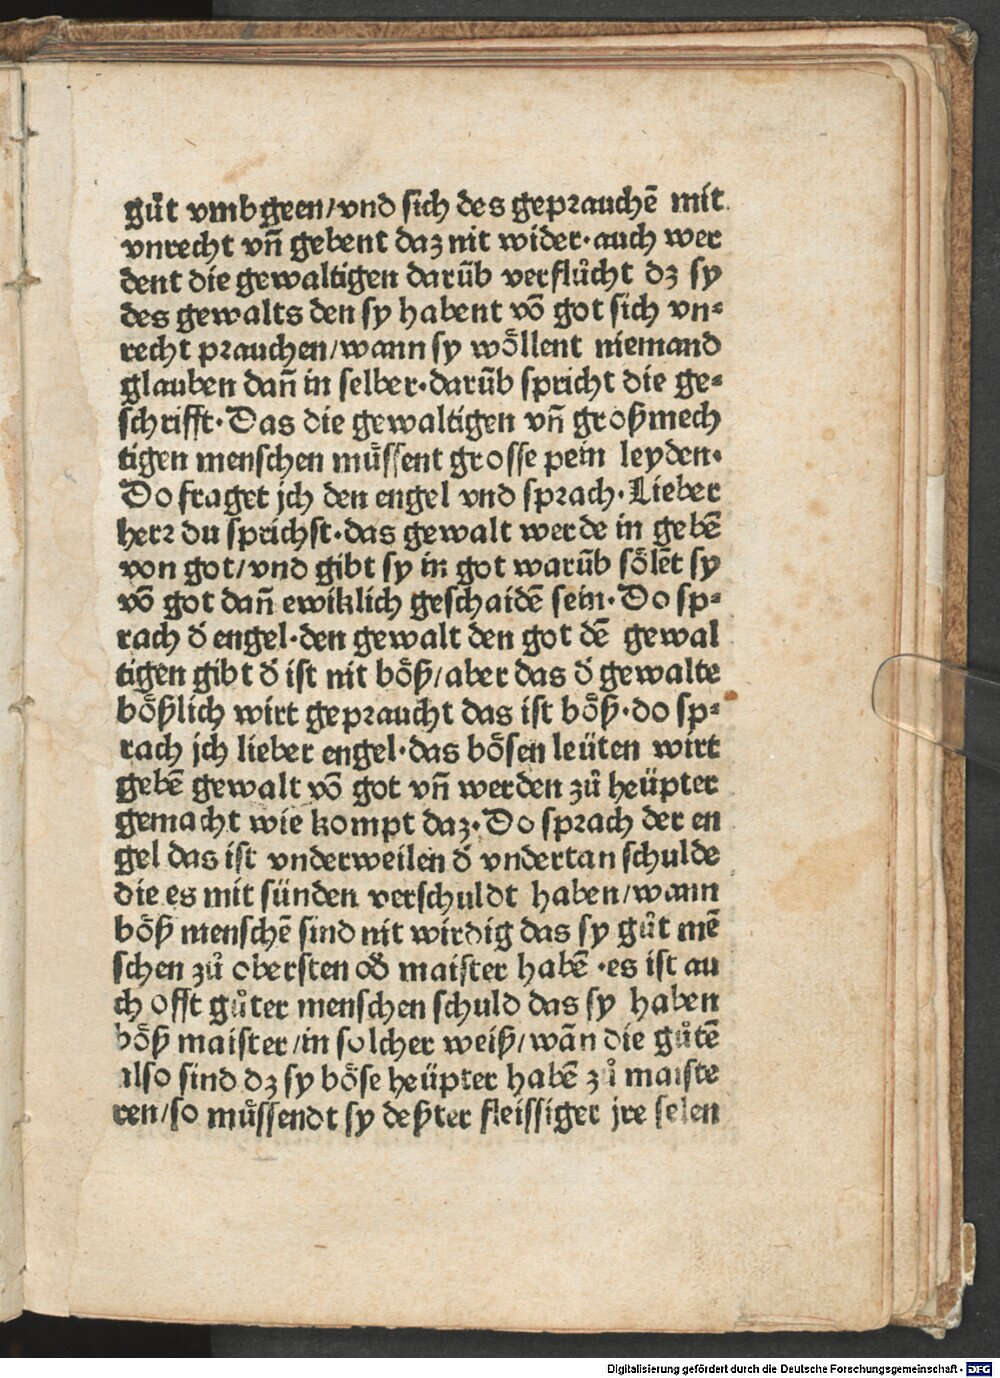 gůt vmbgeen/vnd sich des geprauchē mit
vnrecht vn̄ gebent daz nit wider·auch wer
dent die gewaltigen darūb verflůcht dz sy
des gewalts den sy habent vō got sich vn⸗
recht prauchen/wann sy woͤllent niemand
glauben dan̄ in selber·darūb spricht die ge⸗
schrifft·Das die gewaltigen vn̄ großmech
tigen menschen muͤssent grosse pein leyden·
Do fraget jch den engel vnd sprach·Lieber
herr du sprichst·das gewalt werde in gebē
von got/vnd gibt sy in got warūb soͤlēt sy
vō got dan̄ ewiklich geschaidē sein·Do sp⸗
rach d̓ engel·den gewalt den got dē gewal
tigen gibt d̓ ist nit boͤß/aber das d̓ gewalte
boͤßlich wirt gepraucht das ist boͤß·do sp⸗
rach jch lieber engel·das boͤsen leüten wirt
gebē gewalt vō got vn̄ werden zů heüpter
gemacht wie kompt daz·Do sprach der en
gel das ist vnderweilen d̓ vndertan schulde
die es mit sünden verschuldt haben/wann
boͤß menschē sind nit wirdig das sy gůt mē
schen zů obersten od̓ maister habē·es ist au
ch offt gůter menschen schuld das sy haben
boͤß maister/in solcher weiß/wān die gůtē
also sind dz sy boͤse heüpter habē zů maiste
ren/so muͤssendt sy deßter fleissiger jre selen
Digitalisierung gefördert durch die Deutsche Forschungsgemeinschaft - DFG